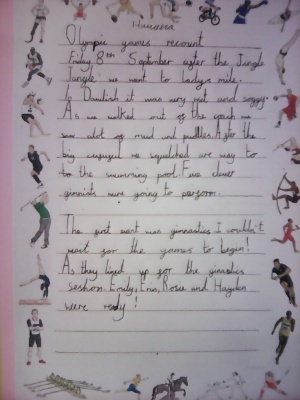 Hanaesa
Olympic games recount
Friday 8th September after the Jungle
Jungle we went to Ladys mile.
In Dawlish it was very wet and soggy.
As we walked out of the coach we
saw alot of mud and puddles. After the
big we squelched are way to
to the swimming pool. Five clever
gimnists were going to perform.
The first event was gimnastics. I wouldn't
wait for the games to begin!
As they lined up for the ginastics
seshorn. Emily, Erin, Rosie and Hayden
were ready!